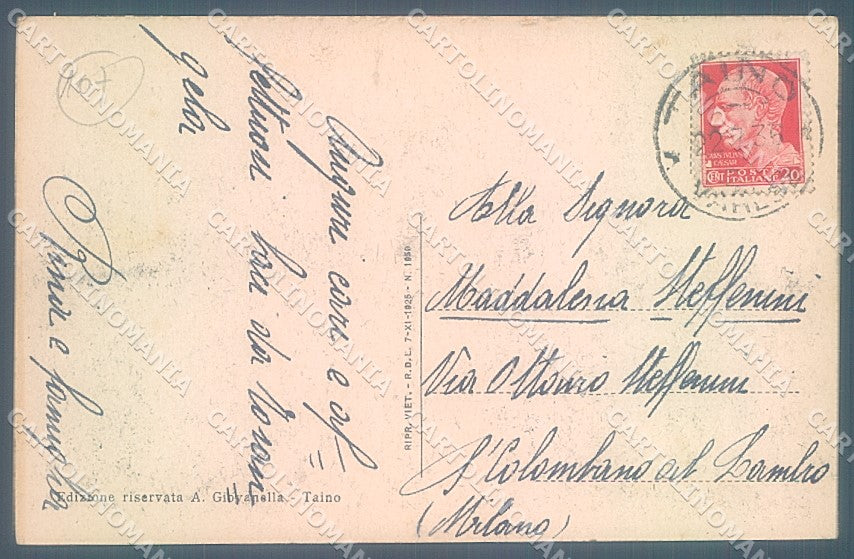 Auguri cari e af=
fettuosi
gela
Pina e famiglia
RIPR. VIET. - R.D.L. 7-XI-1925 - N. 1950
Edizione riservata A. Giovanella - Taino
TAINO
VARESE
POSTE
ITALIANE
CENT 20
Alla Signora
Maddalena Steffenini
Via Ottavio Steffenini
S. Colombano al Lambro
(Milano)
CARTOLINOMANIA